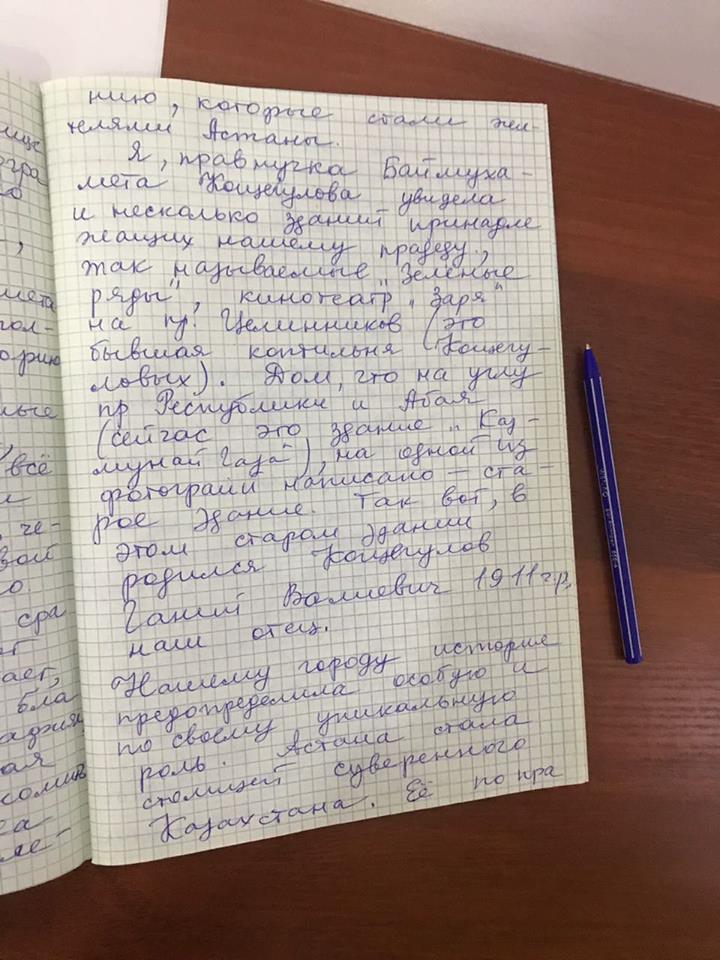 нию, которые стали жи-
телями Астаны.
Я, правнучка Баймуха-
мета Кощегулова увидела
и несколько зданий принадле
жащих нашему прадеду,
так называемые "Зеленые
ряды", кинотеатр "Заря"
на пр. Целинников (это
бывшая коптильня Кощегу-
ловых). Дом, что на углу
пр Республики и Абая
(сейчас это здание "Каз-
мунай Газа"), на одной из
фотографии написано – ста-
рое здание. Так вот, в
этом старом здании
родился Кощегулов
Ганий Валиевич 1911 г.р,
наш отец.
Нашему городу история
предопределила особую и
по своему уникальную
роль. Астана стала
столицей суверенного
Казахстана. Её по пра
мета
гол-
торию
всё
че-
вой
сра
бла